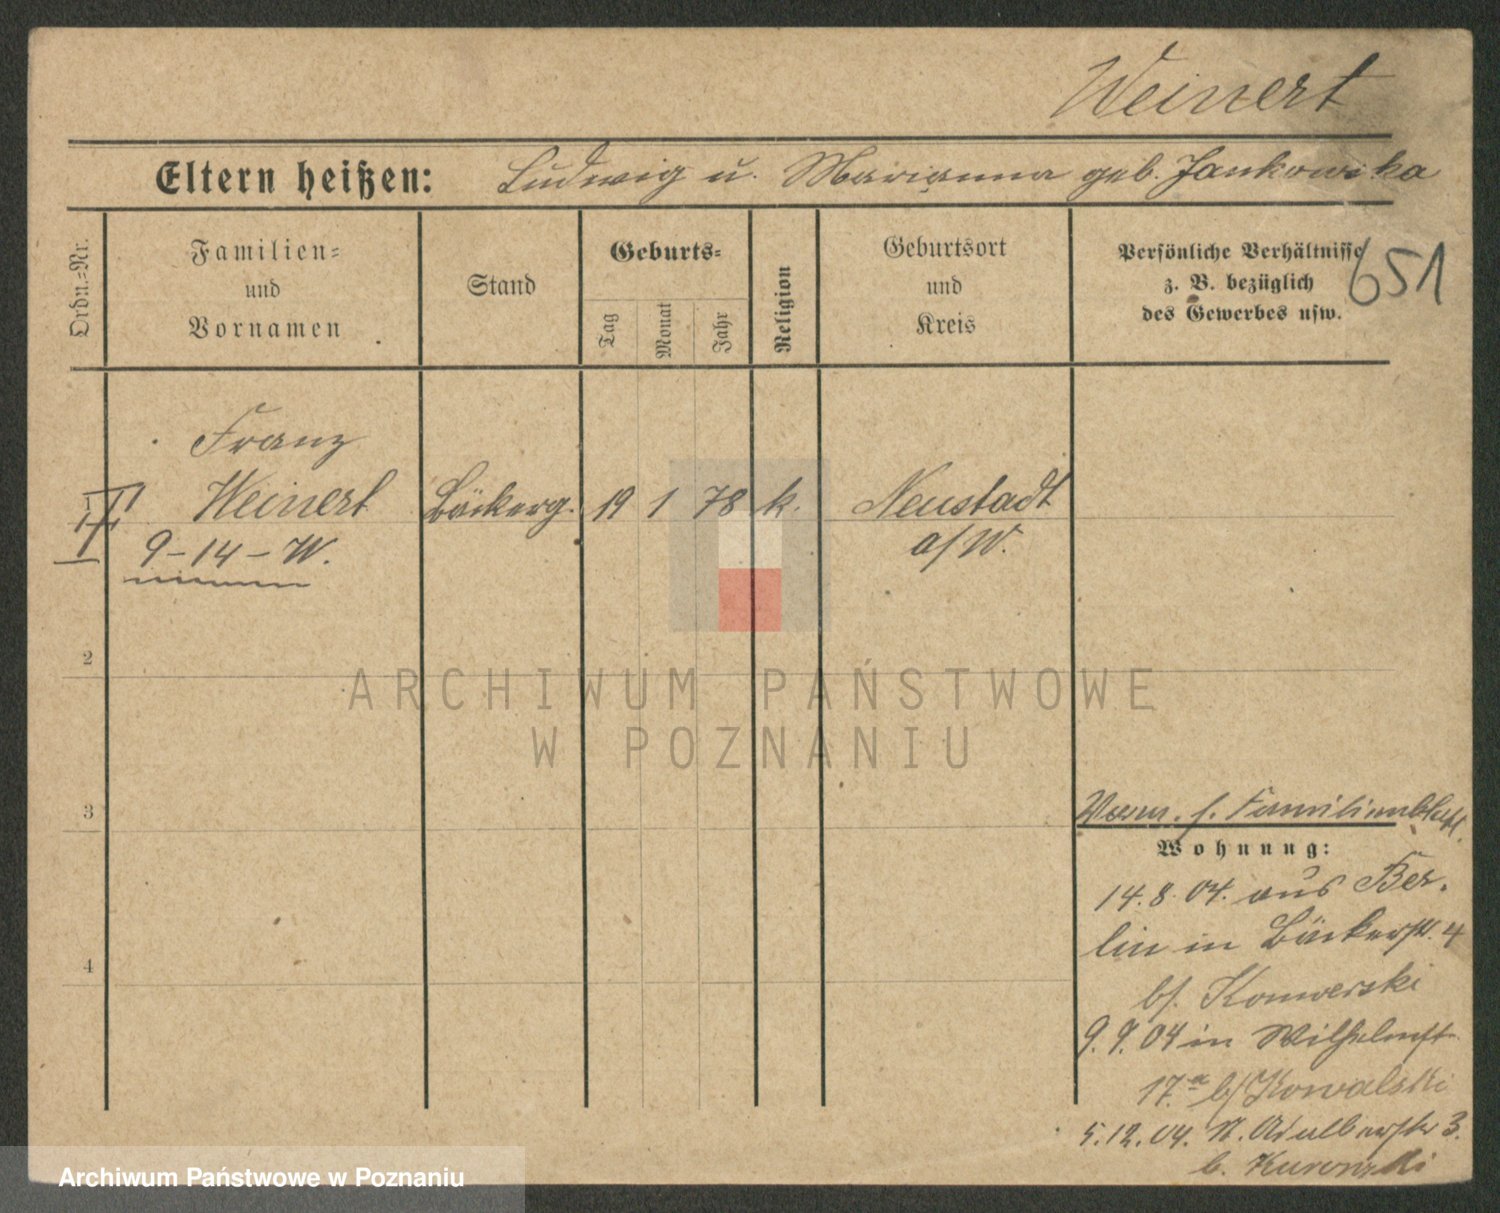 Weinert
Eltern heißen: Ludwig u. Marianna geb. Jankowska
Ordn.=Nr.
Familien=
und
Vornamen
Stand
Geburts=
Tag
Monat
Jahr
Religion
Geburtsort
und
Kreis
Persönliche Verhältnisse
z. B. bezüglich
des Gewerbes usw.
651
Franz
Weinert Bäckerg. 19 1 78 k. Neustadt
a/W.
9-14-W.
2
3
4
f. Familienblatt
Wohnung:
14.8.04. aus Ber-
lin in Bäckerstr. 4
b/. Komverski
9.9.04 in Wilhelmst
17.a b/ Kowalski
5.12.04. N. Adalbertstr 3.
b.
ARCHIWUM PAŃSTWOWE
W POZNANIU
Archiwum Państwowe w Poznaniu